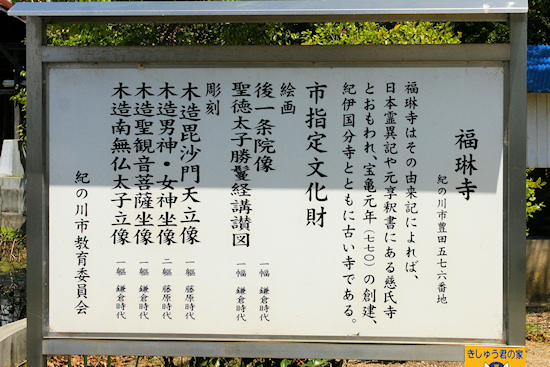 福琳寺
紀の川市豊田五七六番地
福琳寺はその由来記によれば、
日本霊異記や元享釈書にある慈氏寺
とおもわれ、宝亀元年(七七〇)の創建、
紀伊国分寺とともに古い寺である。
市指定文化財
絵画
後一条院像 一幅 鎌倉時代
聖徳太子勝鬘経講讃図 一幅 鎌倉時代
彫刻
木造毘沙門天立像 一軀 藤原時代
木造男神・女神坐像 二軀 藤原時代
木造聖観音菩薩坐像 一軀 鎌倉時代
木造南無仏太子立像 一軀 鎌倉時代
紀の川市教育委員会
きしゅう君の家